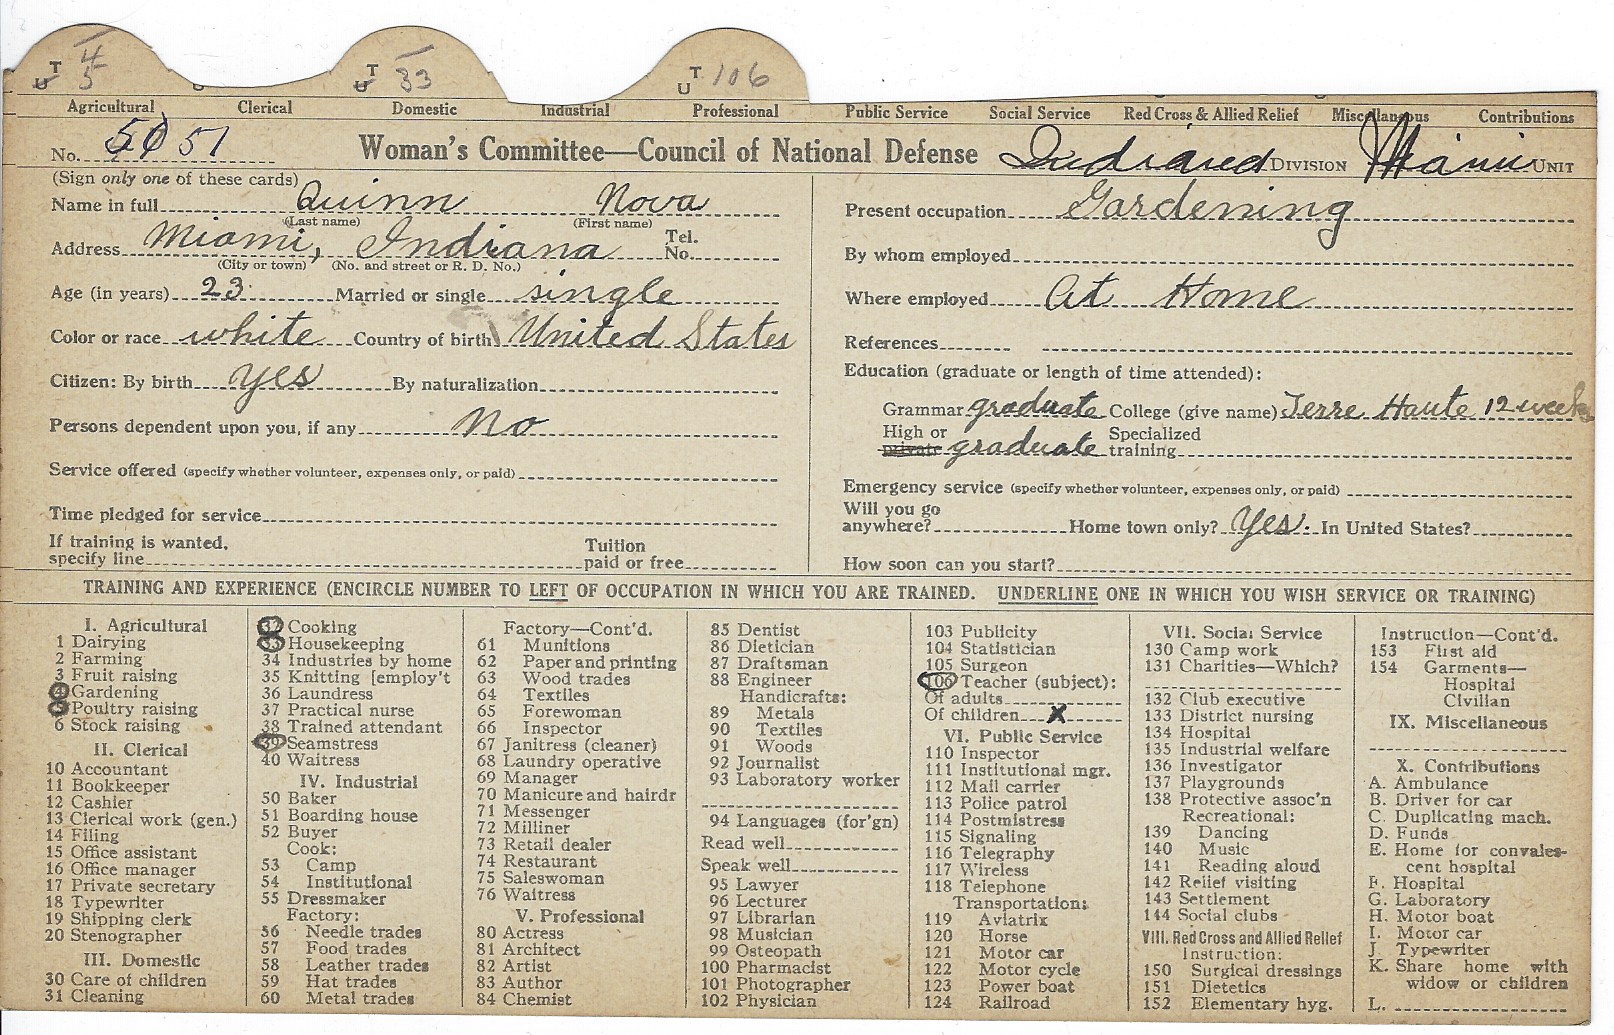 T 4 U 5 T 33 U T 106 U
Agricultural Clerical Domestic Industrial Professional Public Service Social Service Red Cross & Allied Relief Miscellaneous Contributions
No. 51 Woman's Committee—Council of National Defense Indiana DIVISION Miami UNIT
(Sign only one of these cards)
Name in full Quinn Nova
(Last name) (First name)
Address Miami, Indiana Tel. No.
(City or town) (No. and street or R. D. No.)
Age (in years) 23 Married or single single
Color or race white Country of birth United States
Citizen: By birth yes By naturalization
Persons dependent upon you, if any No
Service offered (specify whether volunteer, expenses only, or paid)
Time pledged for service
If training is wanted, specify line Tuition paid or free
Present occupation Gardening
By whom employed
Where employed At Home
References
Education (graduate or length of time attended):
Grammar graduate College (give name) Terre Haute 12 weeks
High or private graduate Specialized training
Emergency service (specify whether volunteer, expenses only, or paid)
Will you go anywhere? Home town only? Yes. In United States?
How soon can you start?
TRAINING AND EXPERIENCE (ENCIRCLE NUMBER TO LEFT OF OCCUPATION IN WHICH YOU ARE TRAINED. UNDERLINE ONE IN WHICH YOU WISH SERVICE OR TRAINING)
I. Agricultural
1 Dairying
2 Farming
3 Fruit raising
4 Gardening
5 Poultry raising
6 Stock raising
II. Clerical
10 Accountant
11 Bookkeeper
12 Cashier
13 Clerical work (gen.)
14 Filing
15 Office assistant
16 Office manager
17 Private secretary
18 Typewriter
19 Shipping clerk
20 Stenographer
III. Domestic
30 Care of children
31 Cleaning
32 Cooking
33 Housekeeping
34 Industries by home
35 Knitting [employ't
36 Laundress
37 Practical nurse
38 Trained attendant
39 Seamstress
40 Waitress
IV. Industrial
50 Baker
51 Boarding house
52 Buyer
Cook:
53 Camp
54 Institutional
55 Dressmaker
Factory:
56 Needle trades
57 Food trades
58 Leather trades
59 Hat trades
60 Metal trades
Factory—Cont'd.
61 Munitions
62 Paper and printing
63 Wood trades
64 Textiles
65 Forewoman
66 Inspector
67 Janitress (cleaner)
68 Laundry operative
69 Manager
70 Manicure and hairdr
71 Messenger
72 Milliner
73 Retail dealer
74 Restaurant
75 Saleswoman
76 Waitress
V. Professional
80 Actress
81 Architect
82 Artist
83 Author
84 Chemist
85 Dentist
86 Dietician
87 Draftsman
88 Engineer
Handicrafts:
89 Metals
90 Textiles
91 Woods
92 Journalist
93 Laboratory worker
94 Languages (for'gn)
Read well
Speak well
95 Lawyer
96 Lecturer
97 Librarian
98 Musician
99 Osteopath
100 Pharmacist
101 Photographer
102 Physician
103 Publicity
104 Statistician
105 Surgeon
106 Teacher (subject):
Of adults
Of children X
VI. Public Service
110 Inspector
111 Institutional mgr.
112 Mail carrier
113 Police patrol
114 Postmistress
115 Signaling
116 Telegraphy
117 Wireless
118 Telephone
Transportation:
119 Aviatrix
120 Horse
121 Motor car
122 Motor cycle
123 Power boat
124 Railroad
VII. Social Service
130 Camp work
131 Charities—Which?
132 Club executive
133 District nursing
134 Hospital
135 Industrial welfare
136 Investigator
137 Playgrounds
138 Protective assoc'n
Recreational:
139 Dancing
140 Music
141 Reading aloud
142 Relief visiting
143 Settlement
144 Social clubs
VIII. Red Cross and Allied Relief
Instruction:
150 Surgical dressings
151 Dietetics
152 Elementary hyg.
Instruction—Cont'd.
153 First aid
154 Garments—
Hospital
Civilian
IX. Miscellaneous
X. Contributions
A. Ambulance
B. Driver for car
C. Duplicating mach.
D. Funds
E. Home for convales-
cent hospital
F. Hospital
G. Laboratory
H. Motor boat
I. Motor car
J. Typewriter
K. Share home with
widow or children
L.